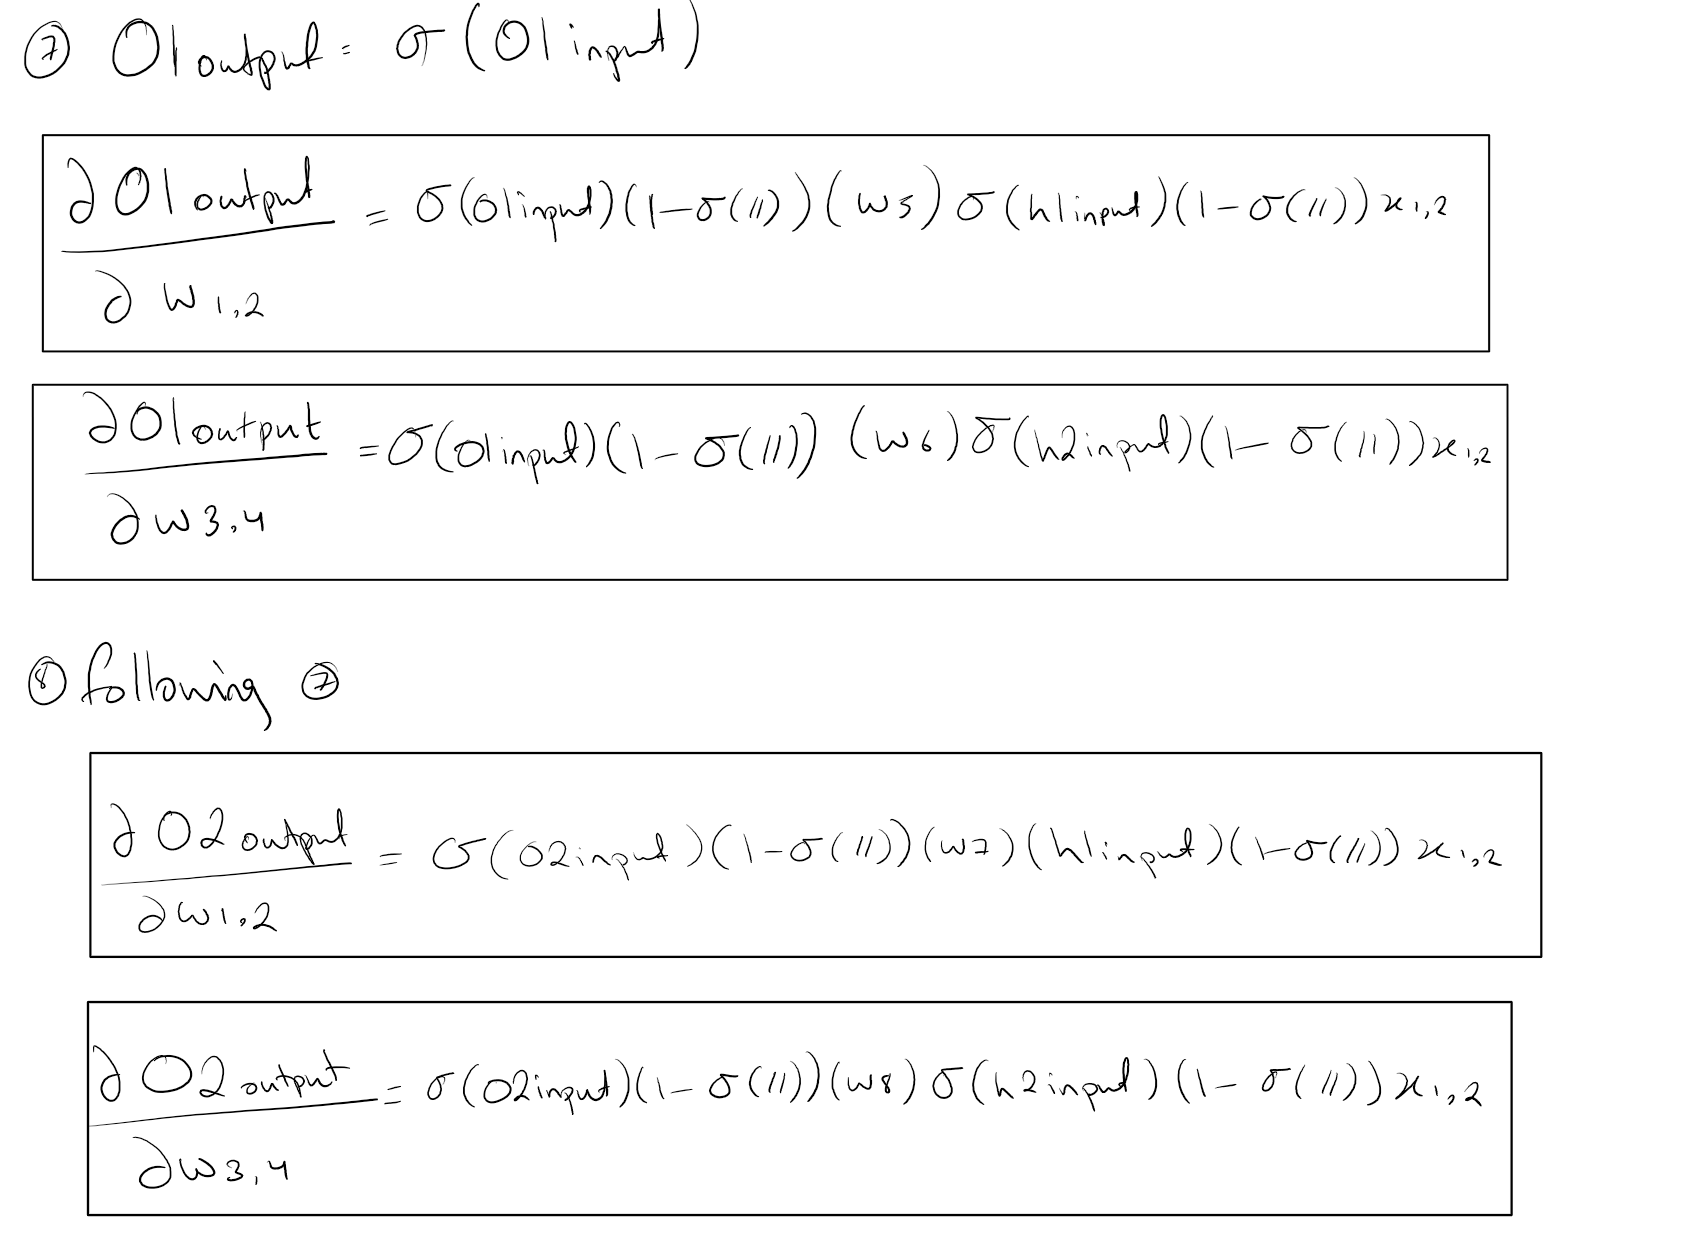 ⑦ O1 output = σ(O1 input)
∂O1 output / ∂w1,2 = σ(O1 input)(1-σ(//))(w5)σ(h1 input)(1-σ(//))x1,2
∂O1 output / ∂w3,4 = σ(O1 input)(1-σ(//))(w6)σ(h2 input)(1-σ(//))x1,2
⑧ following ⑦
∂O2 output / ∂w1,2 = σ(O2 input)(1-σ(//))(w7)(h1 input)(1-σ(//))x1,2
∂O2 output / ∂w3,4 = σ(O2 input)(1-σ(//))(w8)σ(h2 input)(1-σ(//))x1,2